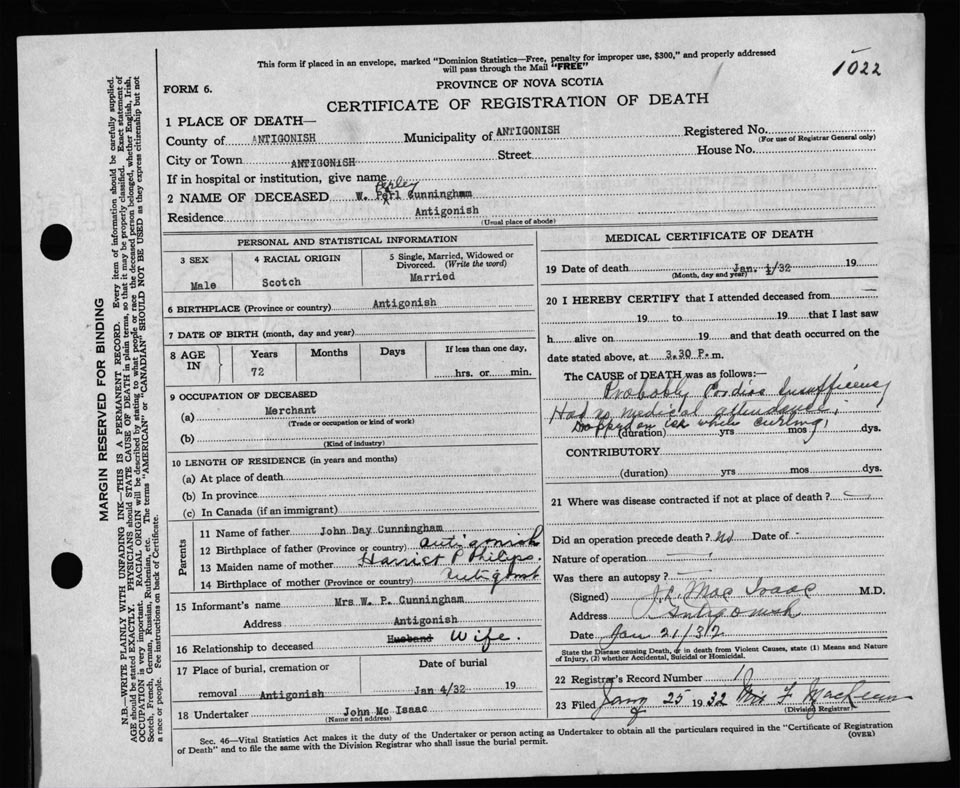 This form if placed in an envelope, marked "Dominion Statistics—Free, penalty for improper use, $300," and properly addressed
will pass through the Mail "FREE"
1022
FORM 6.
PROVINCE OF NOVA SCOTIA
CERTIFICATE OF REGISTRATION OF DEATH
1 PLACE OF DEATH—
County of ANTIGONISH Municipality of ANTIGONISH Registered No.
(For use of Registrar General only)
City or Town ANTIGONISH Street House No.
If in hospital or institution, give name
2 NAME OF DECEASED W. Perl Cunningham
Residence Antigonish
(Usual place of abode)
PERSONAL AND STATISTICAL INFORMATION
3 SEX 4 RACIAL ORIGIN 5 Single, Married, Widowed or
Divorced. (Write the word)
Male Scotch Married
6 BIRTHPLACE (Province or country) Antigonish
7 DATE OF BIRTH (month, day and year)
8 AGE IN Years Months Days If less than one day,
72 hrs. or min.
9 OCCUPATION OF DECEASED
(a) Merchant
(Trade or occupation or kind of work)
(b)
(Kind of industry)
10 LENGTH OF RESIDENCE (in years and months)
(a) At place of death
(b) In province
(c) In Canada (if an immigrant)
Parents
11 Name of father John Day Cunningham
12 Birthplace of father (Province or country) Antigonish
13 Maiden name of mother Harriet P Philips.
14 Birthplace of mother (Province or country)
15 Informant's name Mrs W. P. Cunningham
Address Antigonish
16 Relationship to deceased Husband Wife.
17 Place of burial, cremation or Date of burial
removal Antigonish Jan 4/32 19
18 Undertaker John Mc Isaac
(Name and address)
MEDICAL CERTIFICATE OF DEATH
19 Date of death Jan. 1/32 19
(Month, day and year)
20 I HEREBY CERTIFY that I attended deceased from
19 to 19 that I last saw
h alive on 19 and that death occurred on the
date stated above, at 3.30 P. m.
The CAUSE of DEATH was as follows:—
Probably Cardiac Insufficiency
Had no medical attendance.
on ice while curling.
(duration) yrs mos dys.
CONTRIBUTORY
(duration) yrs mos dys.
21 Where was disease contracted if not at place of death?
Did an operation precede death? No Date of
Nature of operation
Was there an autopsy?
(Signed) Mac Isaac M.D.
Address Antigonish
Date Jan 21/32
State the Disease causing Death, or in death from Violent Causes, state (1) Means and Nature
of Injury, (2) whether Accidental, Suicidal or Homicidal.
22 Registrar's Record Number 1
23 Filed Jany 25 1932 Mrs F
(Division Registrar)
Sec. 46—Vital Statistics Act makes it the duty of the Undertaker or person acting as Undertaker to obtain all the particulars required in the "Certificate of Registration
of Death" and to file the same with the Division Registrar who shall issue the burial permit.
(OVER)
MARGIN RESERVED FOR BINDING
N.B.—WRITE PLAINLY WITH UNFADING INK—THIS IS A PERMANENT RECORD. Every item of information should be carefully supplied.
AGE should be stated EXACTLY. PHYSICIANS should STATE CAUSE OF DEATH in plain terms, so that it may be properly classified. Exact statement of
OCCUPATION is very important. RACIAL ORIGIN will be described by stating to what people or race the deceased person belonged, whether English, Irish,
Scotch, French, German, Russian, Ruthenian, etc. The terms "AMERICAN" or "CANADIAN" SHOULD NOT BE USED as they express citizenship but not
a race or people. See instructions on back of Certificate.